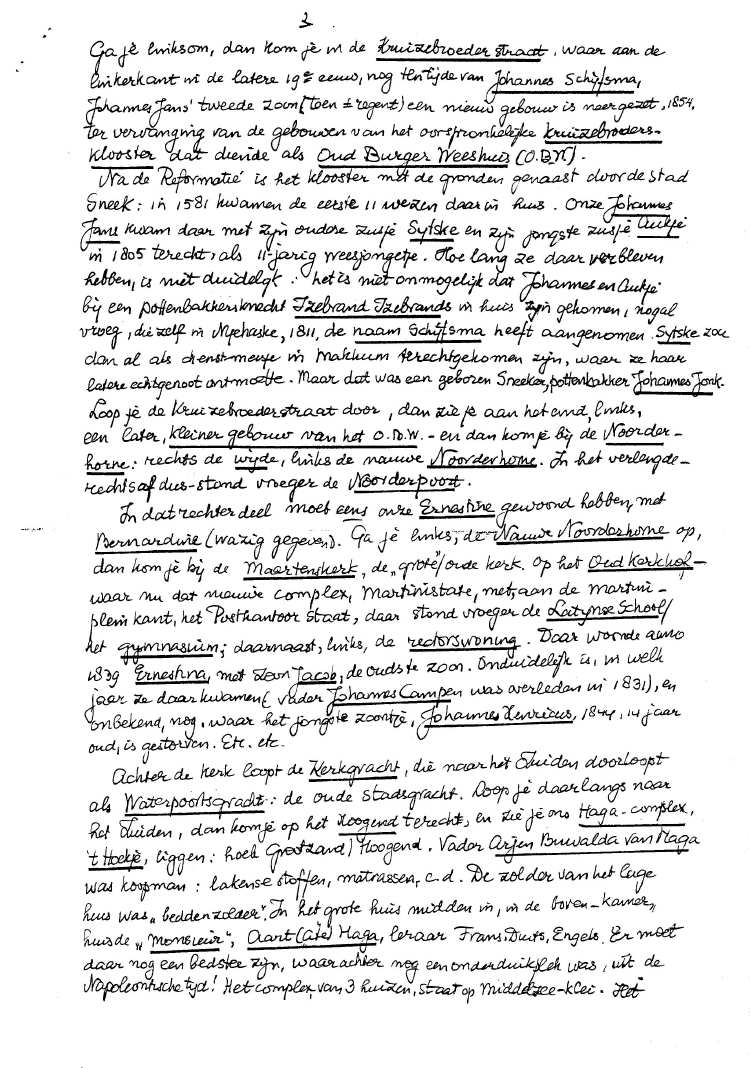 3
Ga je linksom, dan kom je in de Kruizebroederstraat, waar aan de
linkerkant in de latere 19de eeuw, nog ten tijde van Johannes Schijfsma,
Johannes Jans' tweede zoon (toen ± regent) een nieuw gebouw is neergezet, 1854,
ter vervanging van de gebouwen van het oorspronkelijke Kruizebroeders-
klooster dat diende als Oud Burger Weeshuis (O.B.W.).
Na de Reformatie is het klooster met de gronden genaast door de stad
Sneek: in 1581 kwamen de eerste 11 wezen daar in huis. Onze Johannes
Jans kwam daar met zijn oudere zusje Sytske en zijn jongste zusje Aukje
in 1805 terecht, als 11-jarig weesjongetje. Hoe lang ze daar verbleven
hebben, is niet duidelijk: het is niet onmogelijk dat Johannes en Aukje
bij een pottenbakkersknecht IJzebrand IJzebrands in huis zijn gekomen, nogal
vroeg, die zelf in Nijehaske, 1811, de naam Schijfsma heeft aangenomen. Sytske zou
dan al als dienstmeisje in Makkum terechtgekomen zijn, waar ze haar
latere echtgenoot ontmoette. Maar dat was een geboren Sneeker, pottenbakker Johannes Jonk.
Loop je de Kruizebroederstraat door, dan zie je aan het eind, links,
een later, kleiner gebouw van het O.B.W. - en dan kom je bij de Noorder-
horne: rechts de wijde, links de nauwe Noorderhorne. In het verlengde-
rechtsaf dus-stond vroeger de Noorderpoort.
In dat rechter deel moet eens onze Ernestine gewoond hebben, met
Bernardine (wazig gegeven). Ga je links, de Nauwe Noorderhorne op,
dan kom je bij de Maartenskerk, de "grote"/oude kerk. Op het Oud Kerkhof-
waar nu dat nieuwe complex, Martinistate, met, aan de Martini-
pleinkant, het Postkantoor staat, daar stond vroeger de Latijnse School/
het gymnasium; daarnaast, links, de rectorswoning. Daar woonde anno
1839 Ernestina, met zoon Jacob, de oudste zoon. Onduidelijk is, in welk
jaar ze daar kwamen (vader Johannes Campen was overleden in 1831), en
onbekend, nog, waar het jongste zoontje, Johannes Henricus, 1844, 14 jaar
oud, is gestorven. Etc. etc.
Achter de kerk loopt de Kerkgracht, die naar het Zuiden doorloopt
als Waterpoortsgracht: de oude stadsgracht. Loop je daarlangs naar
het Zuiden, dan kom je op het Hoogend terecht, en zie je ons Haga-complex,
't Hoekje, liggen: hoek Grootzand/Hoogend. Vader Arjen Buwalda van Haga
was koopman: lakense stoffen, matrassen, e.d. De zolder van het lage
huis was "beddenzolder". In het grote huis midden in, in de boven-kamer,
huisde "Monsieur", Aart (Ate) Haga, leraar Frans, Duits, Engels. Er moet
daar nog een bedstee zijn, waarachter nog een onderduikplek was, uit de
Napoleontische tijd! Het complex, van 3 huizen, staat op Middelzee-klei. Het